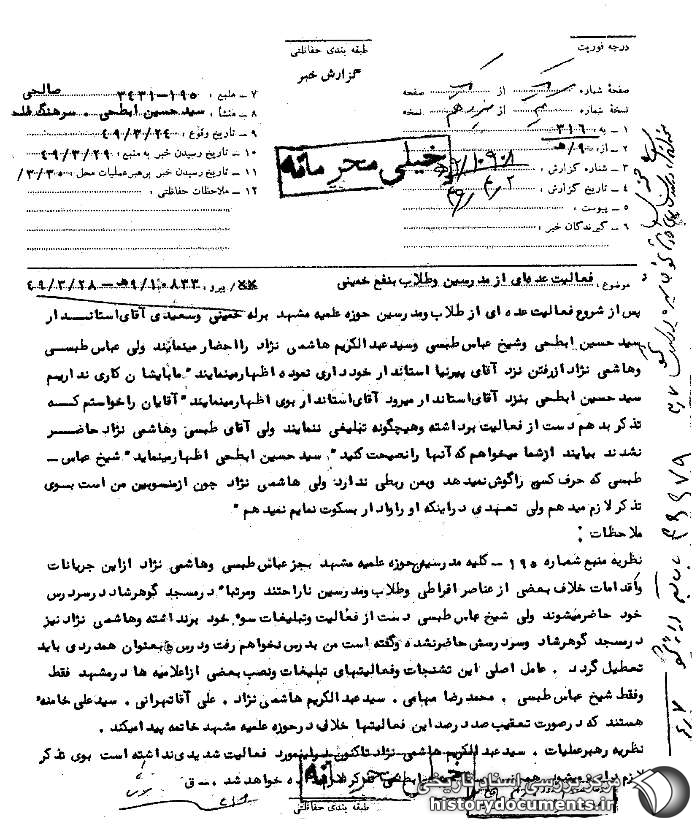 درجه فوریت
طبقه بندی حفاظتی
گزارش خبر
صفحه شماره از صفحه
نسخه شماره از نسخه
۱ – به : ۳۱۶
۲ – از : ۹/هـ
۳ – شماره گزارش :
۴ – تاریخ گزارش :
۵ – پیوست :
۶ – گیرندگان خبر :
۷ – منبع : ۱۹۵–۳۴۳۱ صالحی
۸ – منشأ : سید حسین ابطحی . سرهنگ
۹ – تاریخ وقوع : ۴۹/۳/۲۴
۱۰ – تاریخ رسیدن خبر به منبع : ۴۹/۳/۲۹
۱۱ – تاریخ رسیدن خبر برهبر عملیات محل :
۱۲ – ملاحظات حفاظتی :
خیلی محرمانه
موضوع : فعالیت عده‌ای از مدرسین وطلاب بنفع خمینی
پیرو : ۹/۱۰۸۳۳هـ – ۴۹/۳/۲۸
پس از شروع فعالیت عده ای از طلاب ومدرسین حوزه علمیه مشهد برله خمینی وسعیدی آقای استاندار
سید حسین ابطحی وشیخ عباس طبسی وسید عبدالکریم هاشمی نژاد رااحضار مینمایند ولی عباس طبسی
وهاشمی نژاد ازرفتن نزد آقای پیرنیا استاندار خودداری نموده اظهارمینمایند "مابایشان کاری نداریم
سید حسین ابطحی بنزد آقای استاندار میرود آقای استاندار بوی اظهارمینمایند "آقایان راخواستم کسه
تذکر بدهم دست از فعالیت برداشته وهیچگونه تبلیغی ننمایند ولی آقای طبسی وهاشمی نژاد حاضر
نشدند بیایند ازشما میخواهم که آنها رانصیحت کنید". سید حسین ابطحی اظهارمینماید "شیخ عباس –
طبسی که حرف کسی راگوش نمیدهد وبمن ربطی ندارد ولی هاشمی نژاد چون ازمنسوبین من است بسوی
تذکر لازم میدهم ولی تعهدی دراینکه او راوادار بسکوت نمایم نمیدهم"
ملاحظات :
نظریه منبع شماره ۱۹۵ – کلیه مدرسین حوزه علمیه مشهد بجز عباس طبسی وهاشمی نژاد ازاین جریانات
واقدامات خلاف بعضی از عناصر افراطی وطلاب ومدرسین ناراحتند ومرتبا" درمسجد گوهرشاد درسردرس
خود حاضرمیشوند ولی شیخ عباس طبسی دست از فعالیت وتبلیغات سوء خود برنداشته وهاشمی نژاد نیز
درمسجد گوهرشاد وسردرسش حاضرنشده وگفته است من بدرس نخواهم رفت ودرس بعنوان همدردی باید
تعطیل گردد . عامل اصلی این تشنجات وفعالیتهای تبلیغات ونصب بعضی ازاعلامیه ها درمشهد فقط
وفقط شیخ عباس طبسی . محمد رضا مهامی . سید عبدالکریم هاشمی نژاد . علی آقا تهرانی . سید علی خامنه‌ء
هستند که درصورت تعقیب صددرصد این فعالیتها خلاف درحوزه علمیه مشهد خاتمه پیدا میکند .
نظریه رهبرعملیات . سید عبدالکریم هاشمی نژاد تاکنون فعالیت شدیدی نداشته است بوی تذکر
لازم ابطحی تذکر خواهد شد . – ق
خیلی محرمانه
طبقه بندی حفاظتی
مرکز بررسی اسناد تاریخی
historydocuments.ir